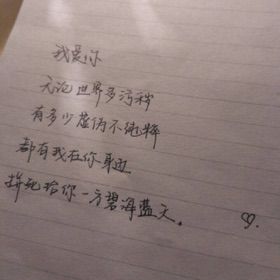 我爱你
无论世界多污秽
有多少虚伪不纯粹
都有我在你身边
拼死给你一方碧海蓝天。♡.